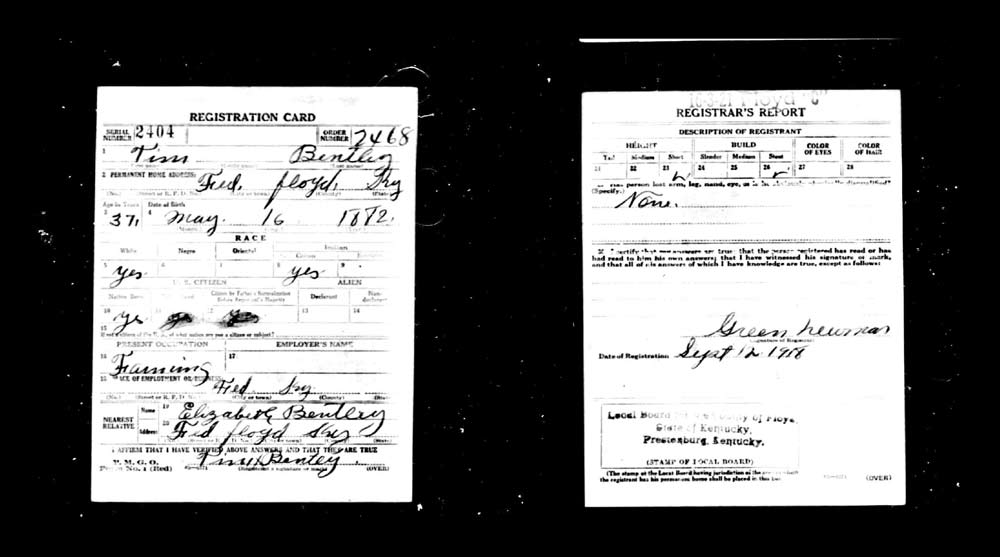 REGISTRATION CARD
SERIAL NUMBER 2404 ORDER NUMBER 2468
1 Tim Bentley
2 PERMANENT HOME ADDRESS: Fed, floyd, Ky
(No.) (Street or R. F. D. No.) (City or town) (County) (State)
Age in Years Date of Birth
3 37, 4 May. 16 1882.
RACE
White Negro Oriental Indian
Citizen
5 yes 6 7 8 yes 9
U. S. CITIZEN ALIEN
Native Born Citizen by Father's Naturalization Before Registrant's Majority Declarant Non-declarant
10 yes 11 12 13 14
15 If not a citizen of the U. S., of what nation are you a citizen or subject?
PRESENT OCCUPATION EMPLOYER'S NAME
16 Farming 17
18 PLACE OF EMPLOYMENT OR BUSINESS: Fed Ky
(No.) (Street or R. F. D. No.) (City or town) (County) (State)
NEAREST RELATIVE Name 19 Elizabeth Bentley
Address 20 Fed floyd Ky
(No.) (Street or R. F. D. No.) (City or town) (County) (State)
I AFFIRM THAT I HAVE VERIFIED ABOVE ANSWERS AND THAT THEY ARE TRUE
P. M. G. O.
Form No. 1 (Red) Tim Bentley
(Registrant's signature or mark) (OVER)
Floyd
REGISTRAR'S REPORT
DESCRIPTION OF REGISTRANT
HEIGHT BUILD COLOR OF EYES COLOR OF HAIR
Tall Medium Short Slender Medium Stout
21 22 23 24 25 26 27 28
(Specify.)
None.
I certify that my answers are true; that the person registered has read or has
had read to him his own answers; that I have witnessed his signature or mark,
and that all of his answers of which I have knowledge are true, except as follows:
Green Newman
(Signature of Registrar)
Date of Registration Sept 12 1918
Local Board County of Floyd
State of Kentucky,
Prestonburg, Kentucky.
(STAMP OF LOCAL BOARD)
(The stamp of the Local Board having jurisdiction of the area in which
the registrant has his permanent home shall be placed in this box.)
(OVER)